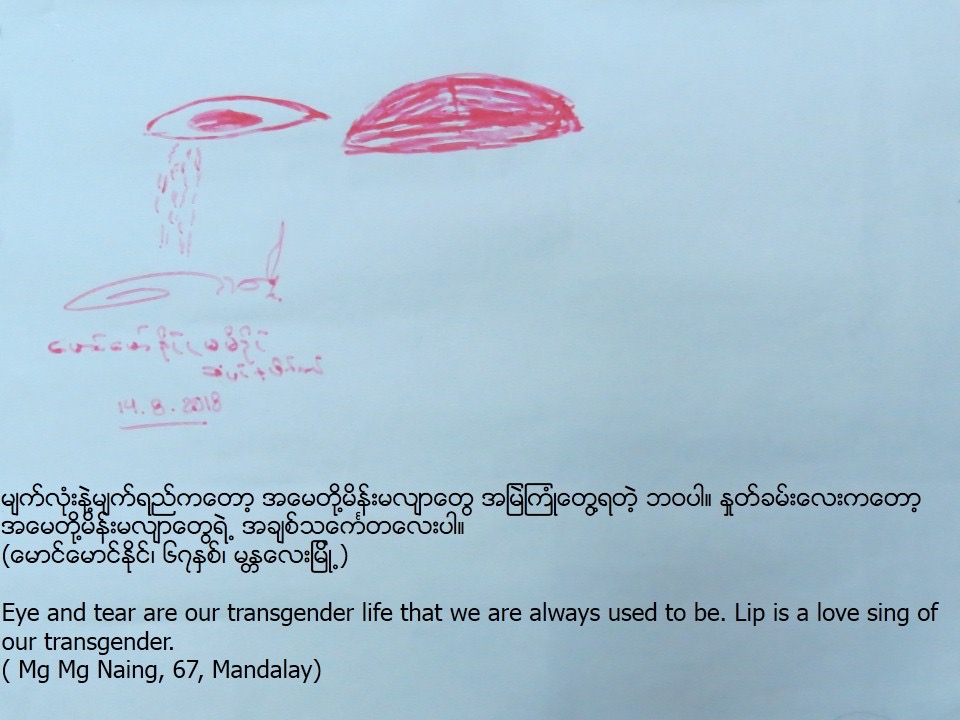 မောင်မောင်နိုင်
14.8.2018
မျက်လုံးနဲ့မျက်ရည်ကတော့ အမေတို့မိန်းမလျာတွေ အမြဲကြုံတွေ့ရတဲ့ ဘဝပါ။ နှုတ်ခမ်းလေးကတော့
အမေတို့မိန်းမလျာတွေရဲ့ အချစ်သင်္ကေတလေးပါ။
(မောင်မောင်နိုင်၊ ၆၇နှစ်၊ မန္တလေးမြို့)
Eye and tear are our transgender life that we are always used to be. Lip is a love sing of
our transgender.
( Mg Mg Naing, 67, Mandalay)